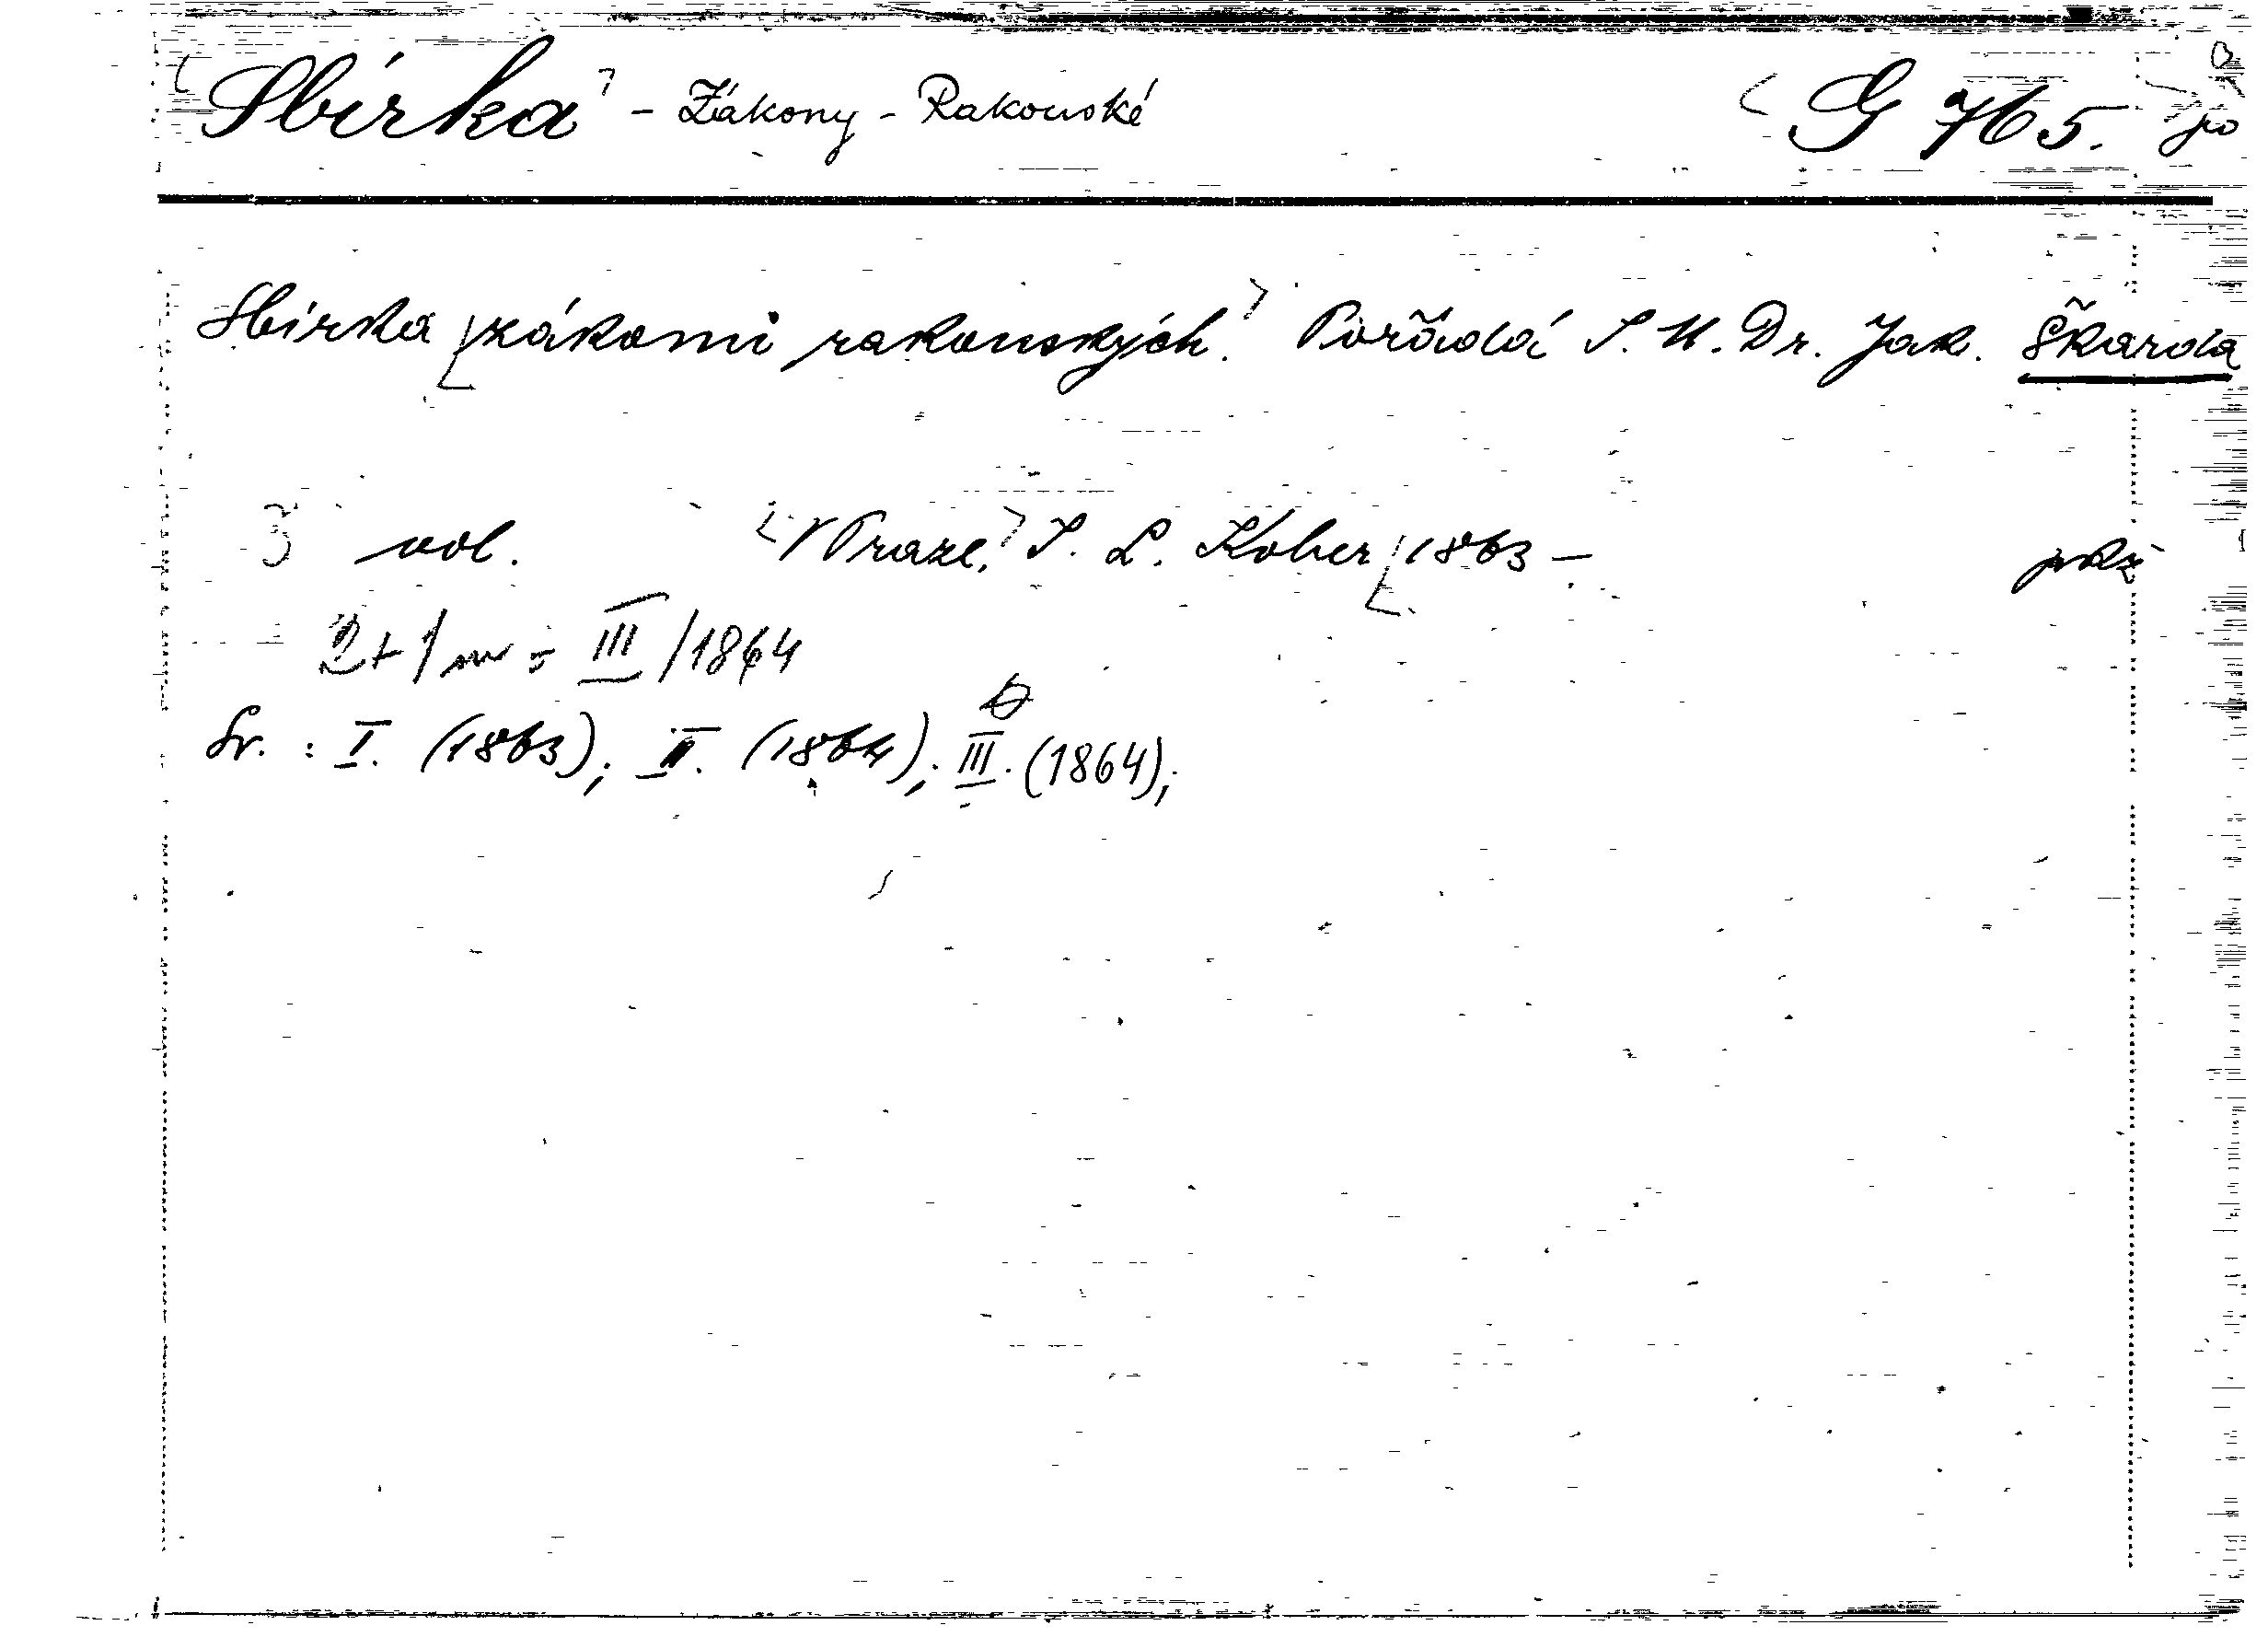 Sbírka - Zákony - Rakouské G 765. po
Sbírka zákonů rakouských. Pořádá J. U. Dr. Jak. Škarda
3 vol. V Praze, I. L. Kober 1863 –
2 + 1 sv = III / 1864
Sv. : I. (1863); II. (1864); III. (1864);